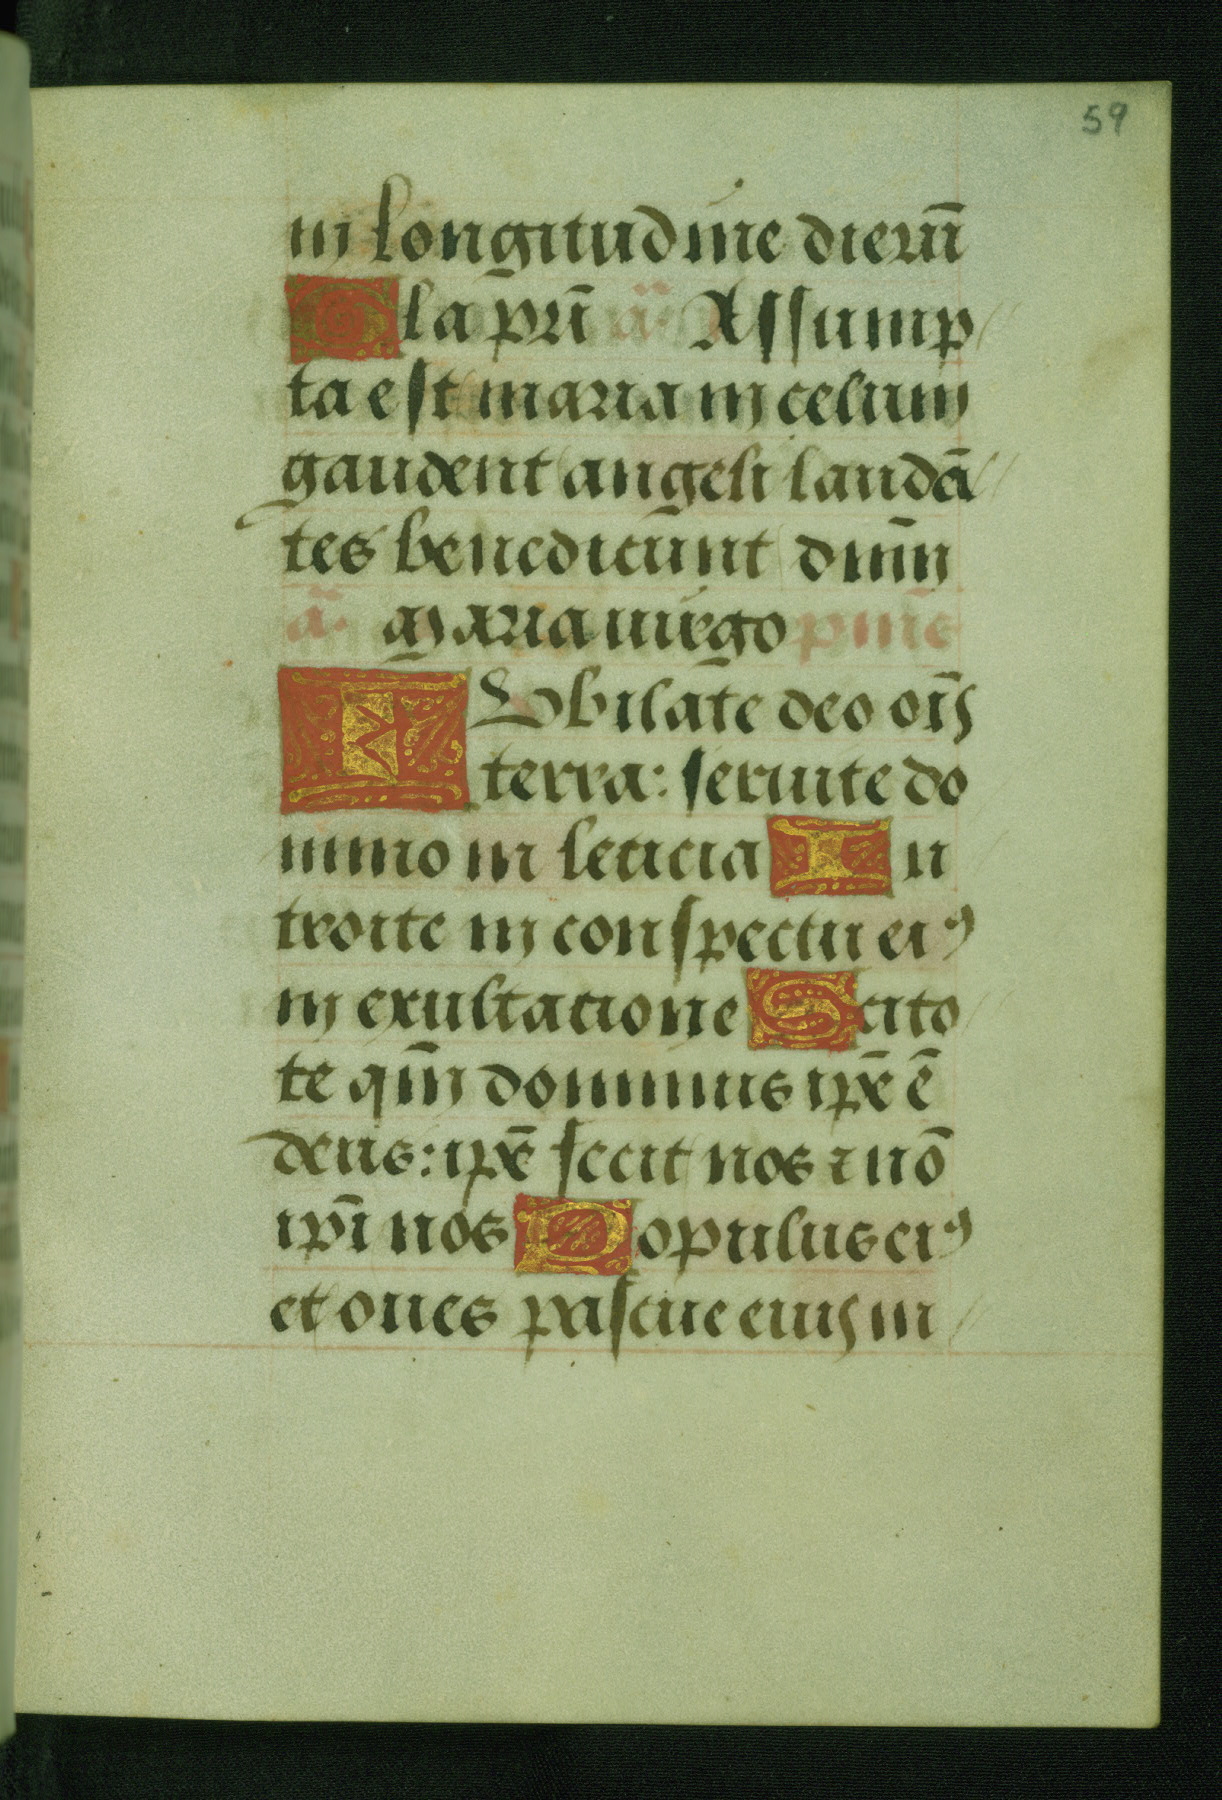 59
in longitudine dierū
Gla prī ā. Assump
ta est maria in celum
gaudent angeli laudā
tes benedicunt dn̄m
ā. Maria uirgo
IVbilate deo oīs
terra: seruite do
mino in leticia In
troite in conspectu eiꝰ
in exultatione Scito
te qm̄ dominus ip̄e ē
deus: ip̄e fecit nos ⁊ nō
ip̄i nos Populus eiꝰ
et oues pascue eius in